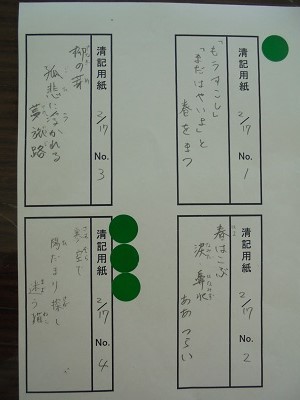 清記用紙 2/17 No. 1
「もうすこし」
「まだはやいよ」と
春をまつ
清記用紙 2/17 No. 2
春はこぶ
涙・鼻水
ああつらい
清記用紙 2/17 No. 3
柳の芽
孤悲に浮かれる
夢旅路
清記用紙 2/17 No. 4
寒空で
陽だまり探し
迷う猫